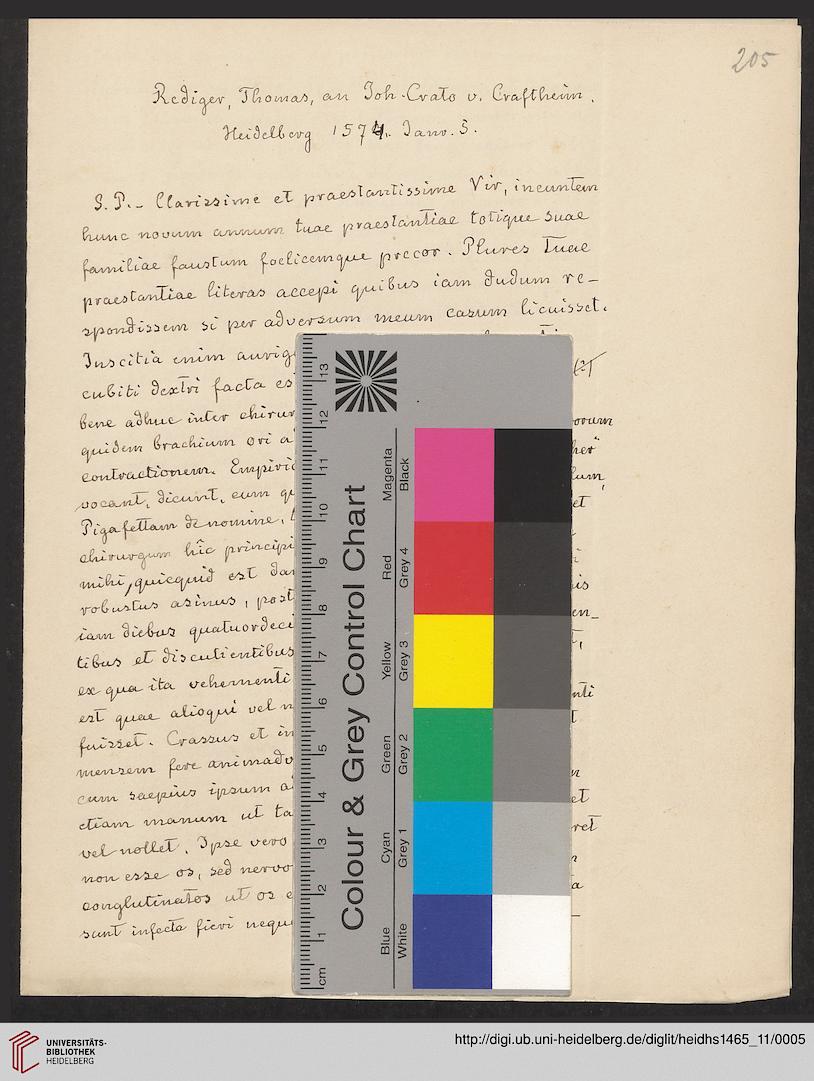 205
Rediger, Thomas, an Joh. Crato v. Craftheim.
Heidelberg 1574. Janr. 5.
S. P. - Clarissime et praestantissime Vir, ineuntem
hunc novum annum tuae praestantiae totique suae
familiae faustum foelicemque precor. Plures Tuae
praestantiae literas accepi quibus iam dudum re-
spondissem si per adversum meum casum licuisset.
Inscitia enim aurig
cubiti dextri facta es
bene adhuc inter chirur
quidem brachium ori a
contractionem. Empiric
vocant, dicunt, eum q
Pigafettam de nomine,
chirurgum hîc princip
mihi, quicquid est da
robustus asinus, post
iam diebus quatuordeci
tibus et discutientibus
ex qua ita vehementi
est quae alioqui vel n
fuisset. Crassus et in
mensem fere animadv
cum saepius ipsum a
etiam manum ut ta
vel nollet. Ipse vero
non esse os, sed nervo
conglutinatos ut os e
sunt infecta fieri nequ
orum
her"
um,
et
is
en_
nti
et
ret
a
Colour & Grey Control Chart
Blue Cyan Green Yellow Red Magenta
White Grey 1 Grey 2 Grey 3 Grey 4 Black
cm 1 2 3 4 5 6 7 8 9 10 11 12 13
UNIVERSITÄTS-
BIBLIOTHEK
HEIDELBERG
http://digi.ub.uni-heidelberg.de/diglit/heidhs1465_11/0005